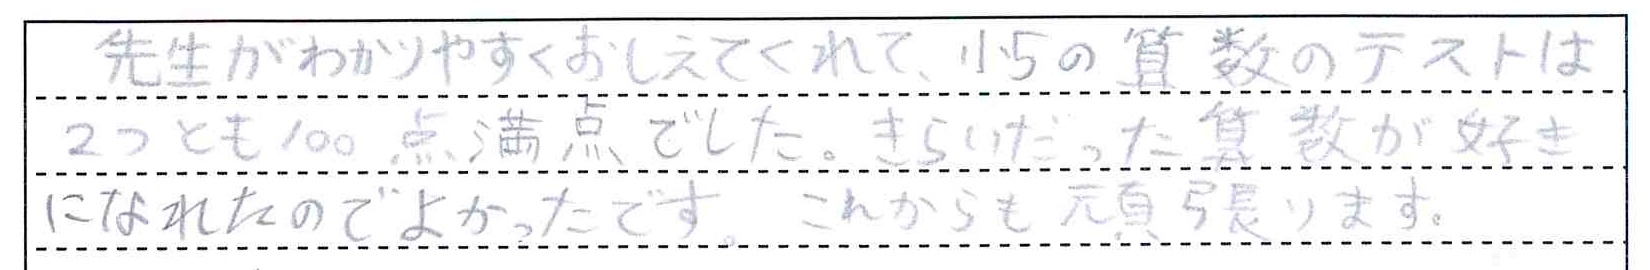 先生がわかりやすくおしえてくれて、小5の算数のテストは
2つとも100点満点でした。きらいだった算数が好き
になれたのでよかったです。これからも頑張ります。